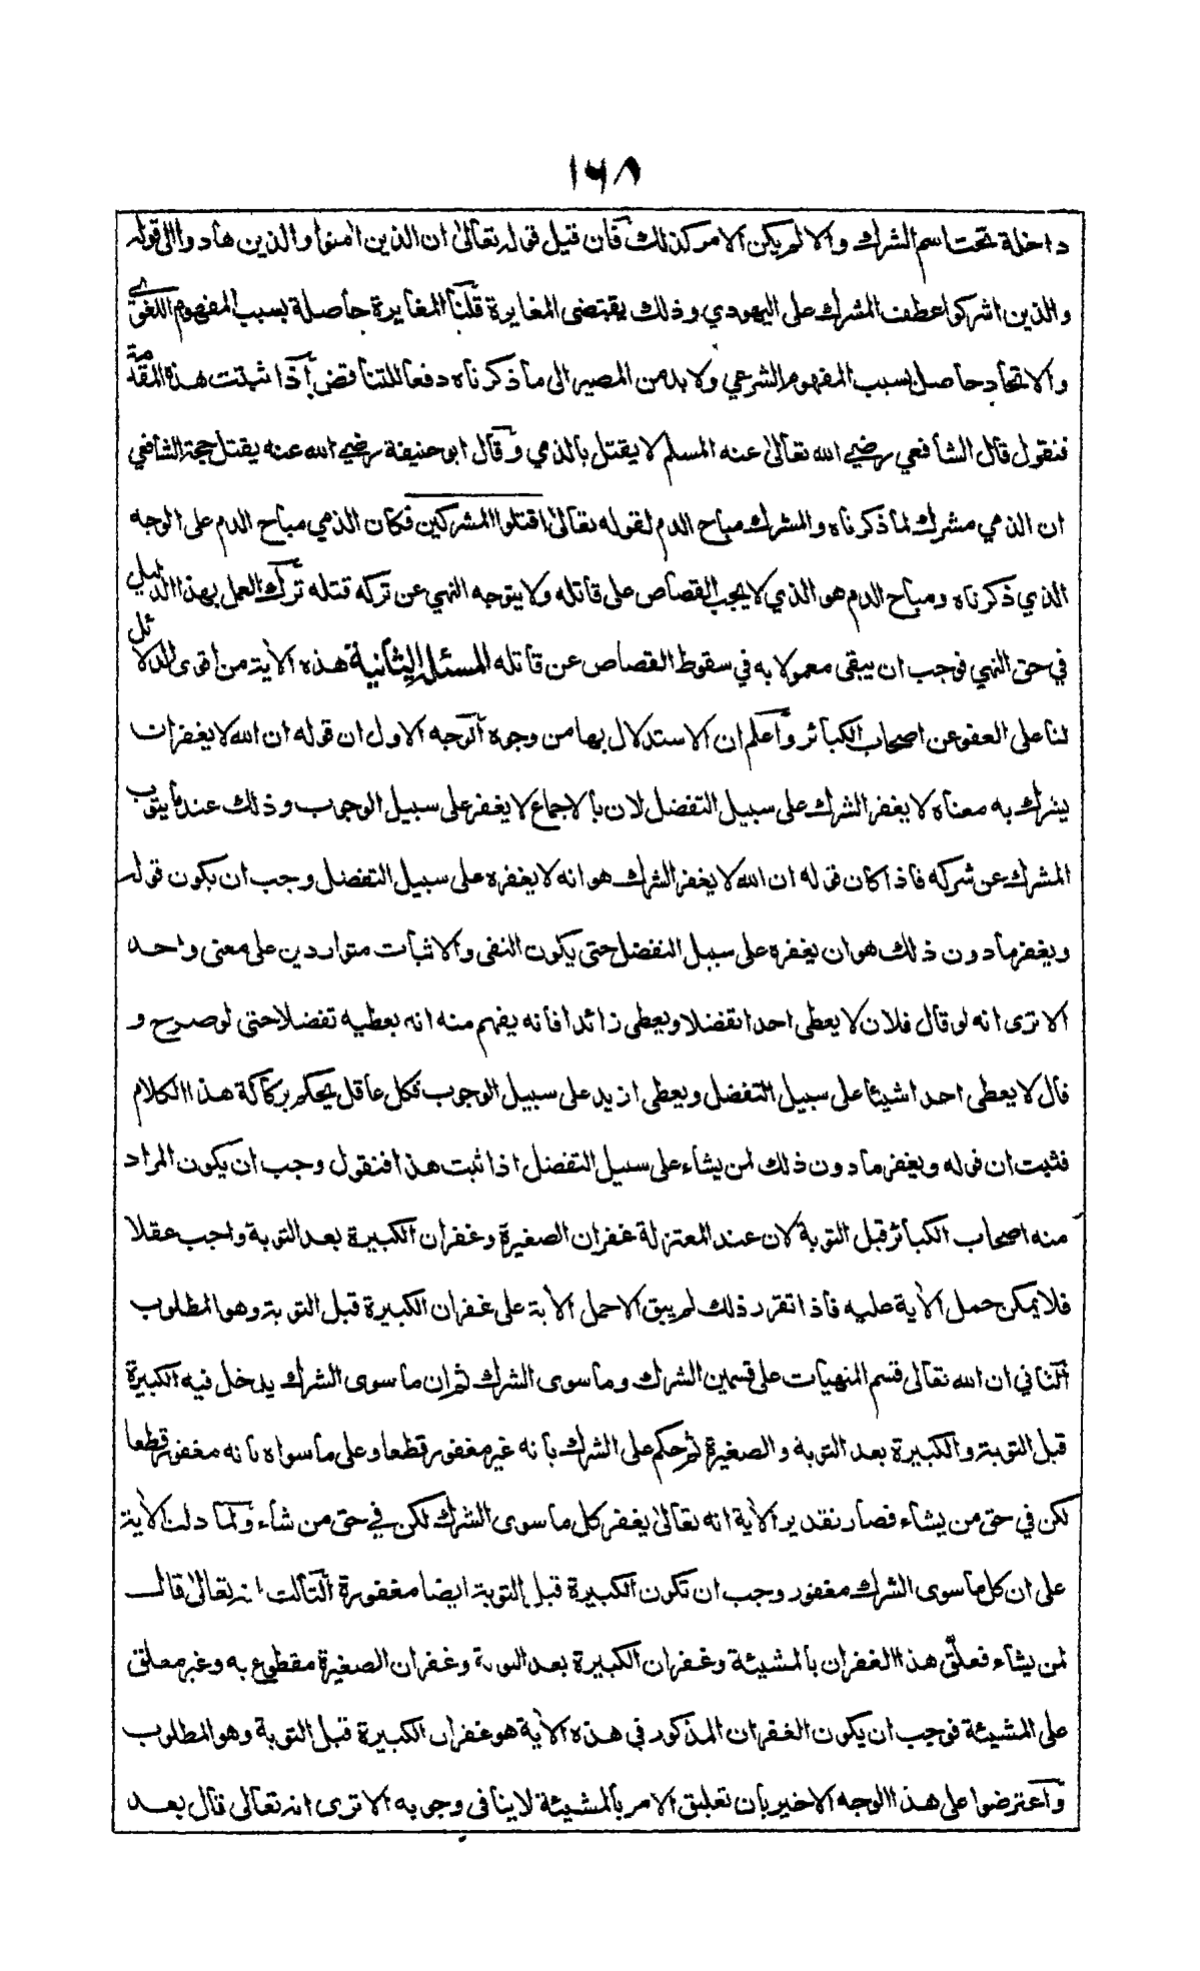 ١٦٨
داخلة تحت اسم الشرك والا لم يكن الامر كذلك فان قيل قوله تعالىٰ ان الذين اٰمنوا والذين هادوا الى قوله
والذين اشركوا عطف المشرك على اليهودي وذلك يقتضى المغايرة قلنا المغايرة حاصلة بسبب المفهوم اللغوى
والاتحاد حاصل بسبب المفهوم الشرعي ولابد من المصير الى ما ذكرناه دفعا للتناقض اذا ثبتت هذه المقدمة
فنقول قال الشافعي رضي الله تعالىٰ عنه المسلم لا يقتل بالذمي وقال ابو حنيفة رضي الله عنه يقتل حجة الشافعي
ان الذمي مشرك لما ذكرناه والمشرك مباح الدم لقوله تعالىٰ اقتلوا المشركين فكان الذمي مباح الدم على الوجه
الذي ذكرناه ومباح الدم هو الذي لا يجب القصاص على قاتله ولا يتوجه النهي عن تركه قتله ترك العمل بهذا الدليل
في حق النهي فوجب ان يبقى معمولا به في سقوط القصاص عن قاتله المسئلة الثانية هذه الاٰية من اقوى الدلائل
لنا على العفو عن اصحاب الكبائر واعلم ان الاستدلال بها من وجوه الوجه الاول ان قوله ان الله لا يغفر ان
يشرك به معناه لا يغفر الشرك على سبيل التفضل لان بالاجماع لا يغفر على سبيل الوجوب وذلك عندما يتوب
المشرك عن شركه فاذا كان قوله ان الله لا يغفر الشرك هو انه لا يغفره على سبيل التفضل وجب ان يكون قوله
ويغفر ما دون ذلك هو ان يغفره على سبيل التفضل حتى يكون النفى والاثبات متواردين على معنى واحد
الا ترى انه لو قال فلان لا يعطى احدا تفضلا ويعطى زائدا فانه يفهم منه انه يعطيه تفضلا حتى لو صرح و
قال لا يعطى احدا شيئا على سبيل التفضل ويعطى ازيد على سبيل الوجوب فكل عاقل يحكم بركاكة هذا الكلام
فثبت ان قوله ويغفر ما دون ذلك لمن يشاء على سبيل التفضل اذا ثبت هذا فنقول وجب ان يكون المراد
منه اصحاب الكبائر قبل التوبة لان عند المعتزلة غفران الصغيرة وغفران الكبيرة بعد التوبة واجب عقلا
فلا يمكن حمل الاٰية عليه فاذا تقرر ذلك لم يبق الا حمل الاٰية على غفران الكبيرة قبل التوبة وهو المطلوب
الثاني ان الله تعالى قسم المنهيات على قسمين الشرك وما سوى الشرك ثم ان ما سوى الشرك يدخل فيه الكبيرة
قبل التوبة والكبيرة بعد التوبة والصغيرة ثم حكم على الشرك بانه غير مغفور قطعا وعلى ما سواه بانه مغفور قطعا
لكن في حق من يشاء فصار تقدير الاٰية انه تعالىٰ يغفر كل ما سوى الشرك لكن في حق من شاء ولما دلت الاٰية
على ان كل ما سوى الشرك مغفور وجب ان تكون الكبيرة قبل التوبة ايضا مغفورة الثالث انه تعالىٰ قال
لمن يشاء فعلق هذا الغفران بالمشيئة وغفران الكبيرة بعد التوبة وغفران الصغيرة مقطوع به وغير معلق
على المشيئة فوجب ان يكون الغفران المذكور في هذه الاٰية هو غفران الكبيرة قبل التوبة وهو المطلوب
واعترضوا على هذا الوجه الاخير بان تعليق الامر بالمشيئة لا ينافى وجوبه الا ترى انه تعالى قال بعد